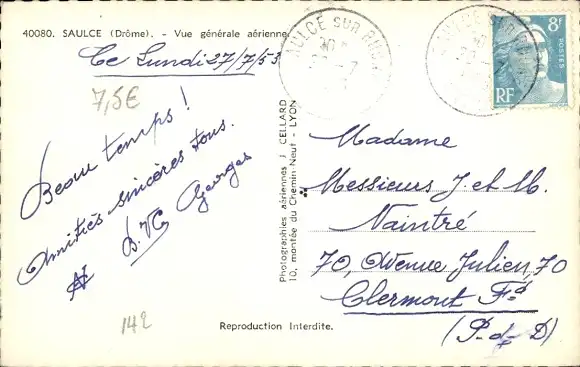 40080. SAULCE (Drôme). - Vue générale aérienne.
Ce Lundi 27/7/53
7,5€
Beau temps !
Amitiés sincères tous.
Georges
142
Photographies aériennes J. CELLARD
10, montée du Chemin-Neuf - LYON
Reproduction Interdite.
SAULCE SUR RHONE
8F
POSTES
RF
Madame
Messieurs J. et M.
Naintré
70, Avenue Julien, 70
Clermont Fd
(P-de-D)